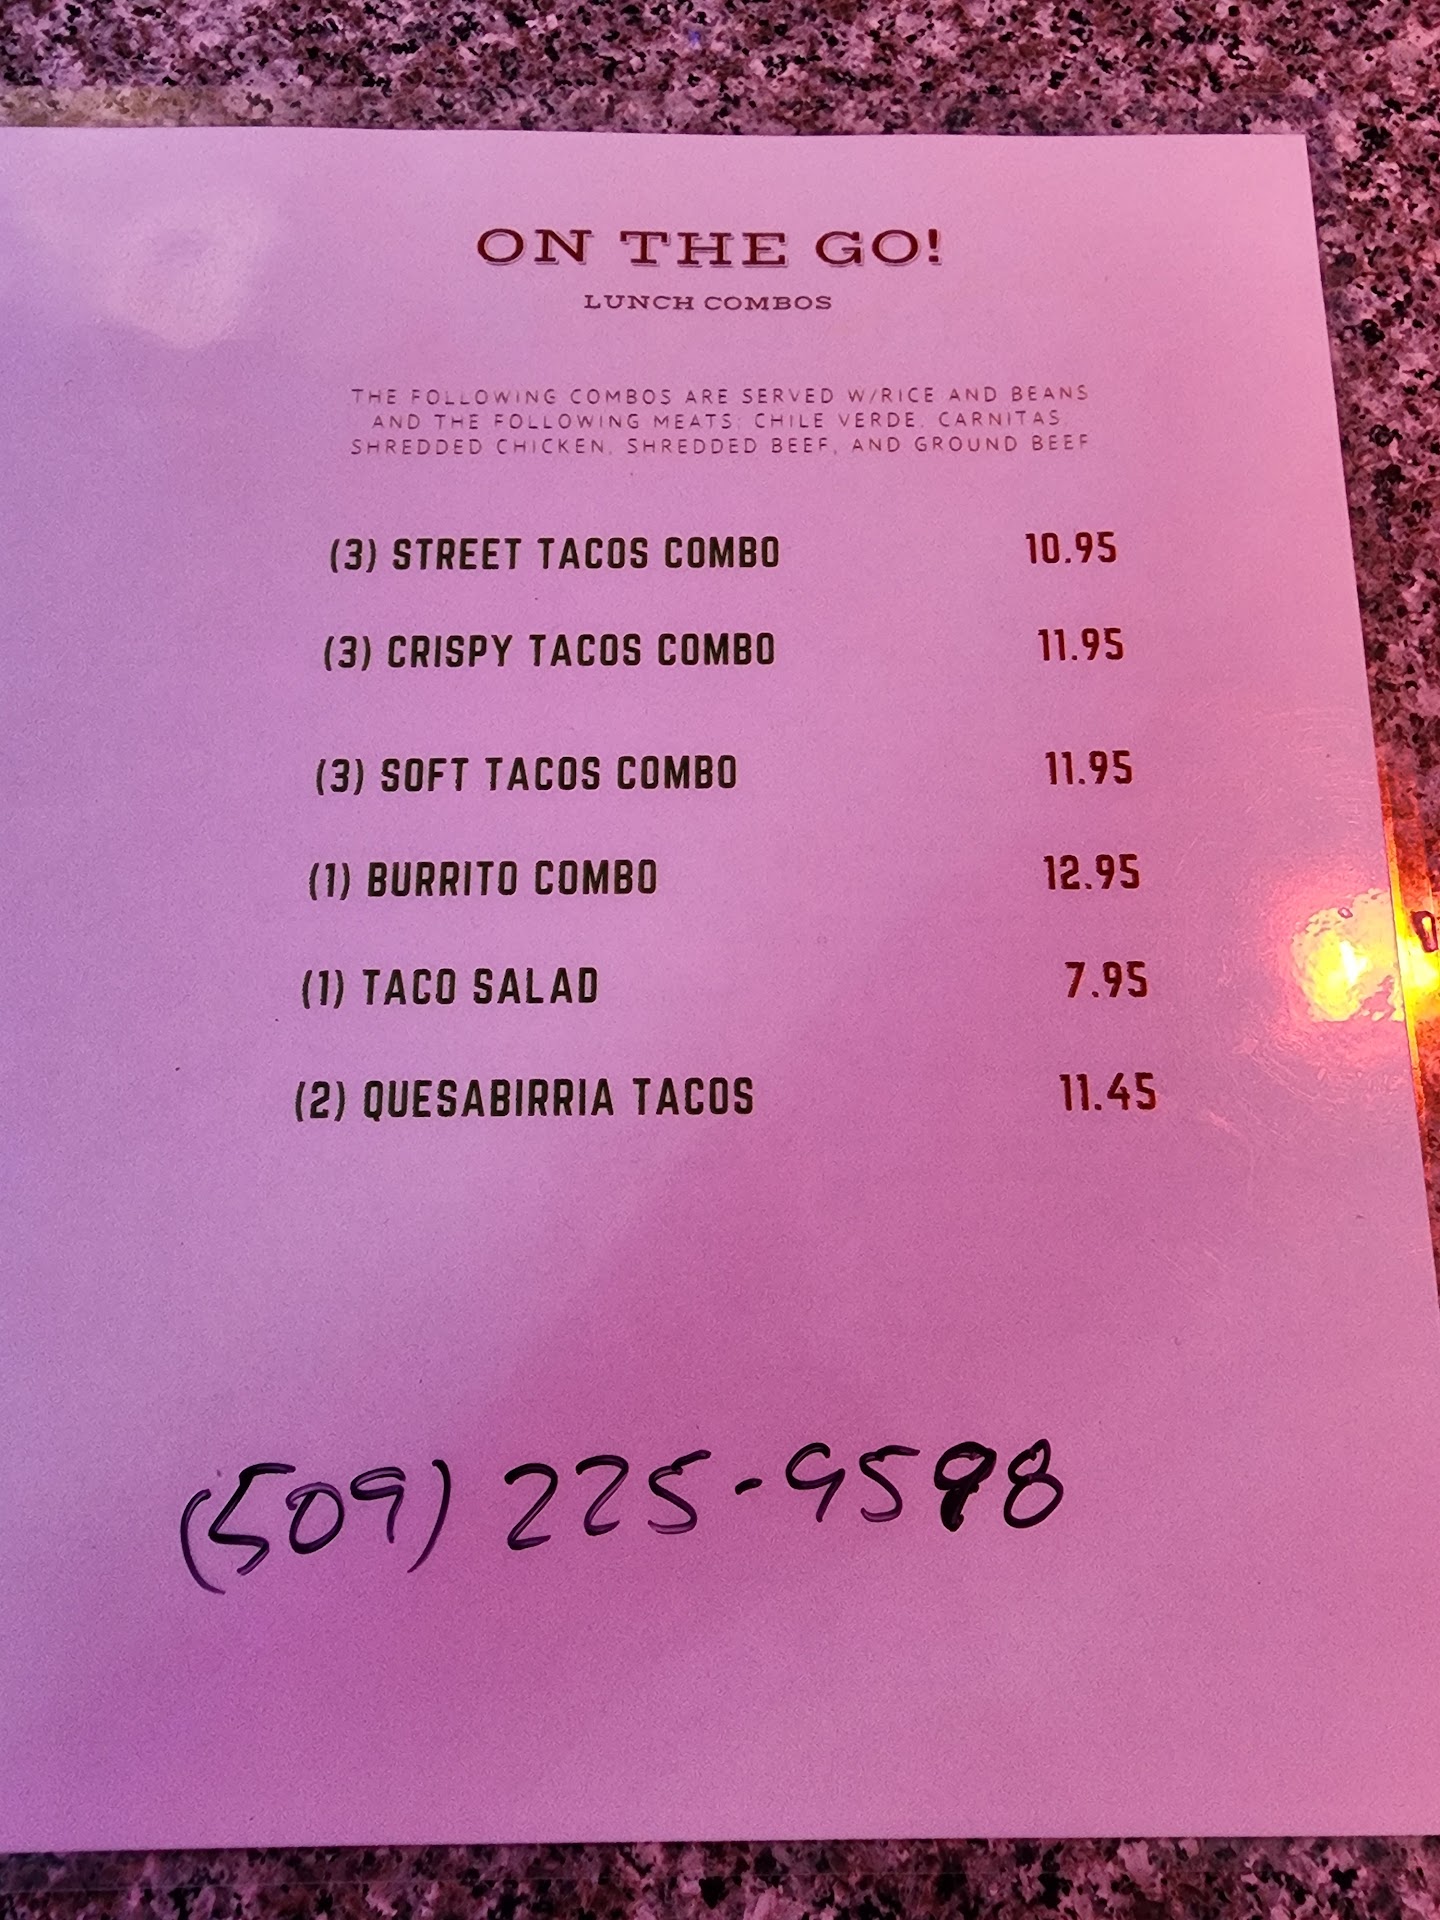 ON THE GO!
LUNCH COMBOS
THE FOLLOWING COMBOS ARE SERVED W/RICE AND BEANS
AND THE FOLLOWING MEATS: CHILE VERDE, CARNITAS,
SHREDDED CHICKEN, SHREDDED BEEF, AND GROUND BEEF
(3) STREET TACOS COMBO 10.95
(3) CRISPY TACOS COMBO 11.95
(3) SOFT TACOS COMBO 11.95
(1) BURRITO COMBO 12.95
(1) TACO SALAD 7.95
(2) QUESABIRRIA TACOS 11.45
(509) 225-9598